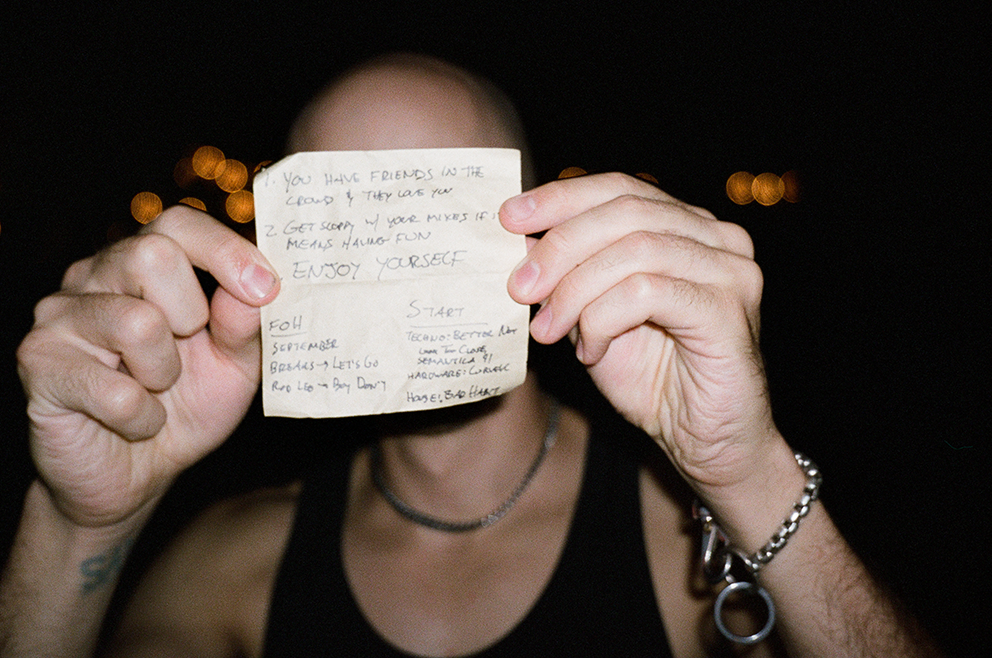 1. YOU HAVE FRIENDS IN THE
CROWD & THEY LOVE YOU
2. GET SLOPPY W/ YOUR MIXES IF
MEANS HAVING FUN
ENJOY YOURSELF
FOH
SEPTEMBER
BREAKS → LET'S GO
RED LEO → BOY DON'T
START
TECHNO: BETTER NOT
LOOK TOO CLOSE,
SEMANTICA 91
HARDWARE:
HOUSE: BAD HABIT